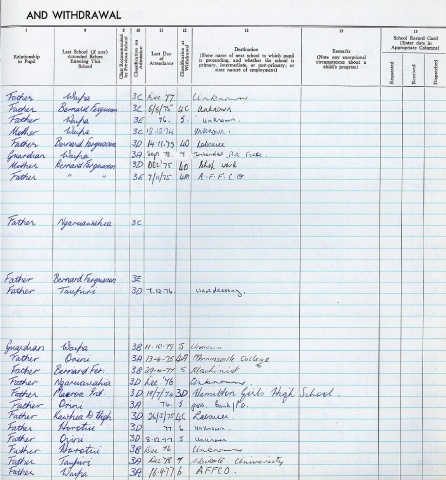 AND WITHDRAWAL
7 8 9 10 11 12 13 14 15
Relationship to Pupil | Last School (if any) Attended Before Entering This School | Classification on Admission | Last Day of Attendance | Destination (Show name of next school to which pupil is proceeding, and whether the school is primary, intermediate, or post-primary, or state nature of employment) | Remarks (Note any exceptional circumstances about a child's progress) | School Record Card (Enter date in Appropriate Column) Requested Received Despatched
Father Waipa 3C Dec 77. Unknown
Father Bernard Ferguson 3C 5/5/75 4C Unknown
Father Waipa 3E 76. 5 Unknown.
Mother Waipa 3C 18.12.74 Unknown.
Father Bernard Fergusson 3D 14.11.75 4D Labourer
Guardian Waipa 3A Sept 78. 7
Mother Bernard Fergusson 3D Dec '75 4D Shop work
Father " " 3E 7/11/75 4M A.F.F.C.O
Father Ngaruawahia 3C
Father Bernard Fergusson 3E
Father Taupiri 3D 7.12.76.
Guardian Waipa 3B 11-10-77 5 Unknown
Father Orini 3A 13-6-75 4A Morrinsville College
Father Bernard Fer. 3B 29-4-77 5 Machinist
Father Ngaruawahia 3D Dec '76 Unknown.
Father 3D 3D Hamilton Girls High School.
Father Orini 3A 76. 5
Father Kawhia D. High 3D 26/5/75 4C Labourer
Father Horotiu 3D 77 6 Unknown.
Father Orini 3D 8.12.77 5 Unknown
Father Horotiu 3B Dec 76 Unknown
Father Taupiri 3A Dec '78 7 Waikato University
Father Waipa 3A 16.9.77 6 AFFCO.